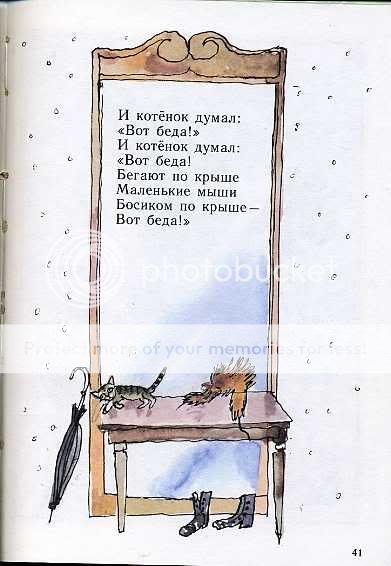 И котёнок думал:
«Вот беда!»
И котёнок думал:
«Вот беда!
Бегают по крыше
Маленькие мыши
Босиком по крыше—
Вот беда!»
photobucket
Protect more of your memories for less!
41